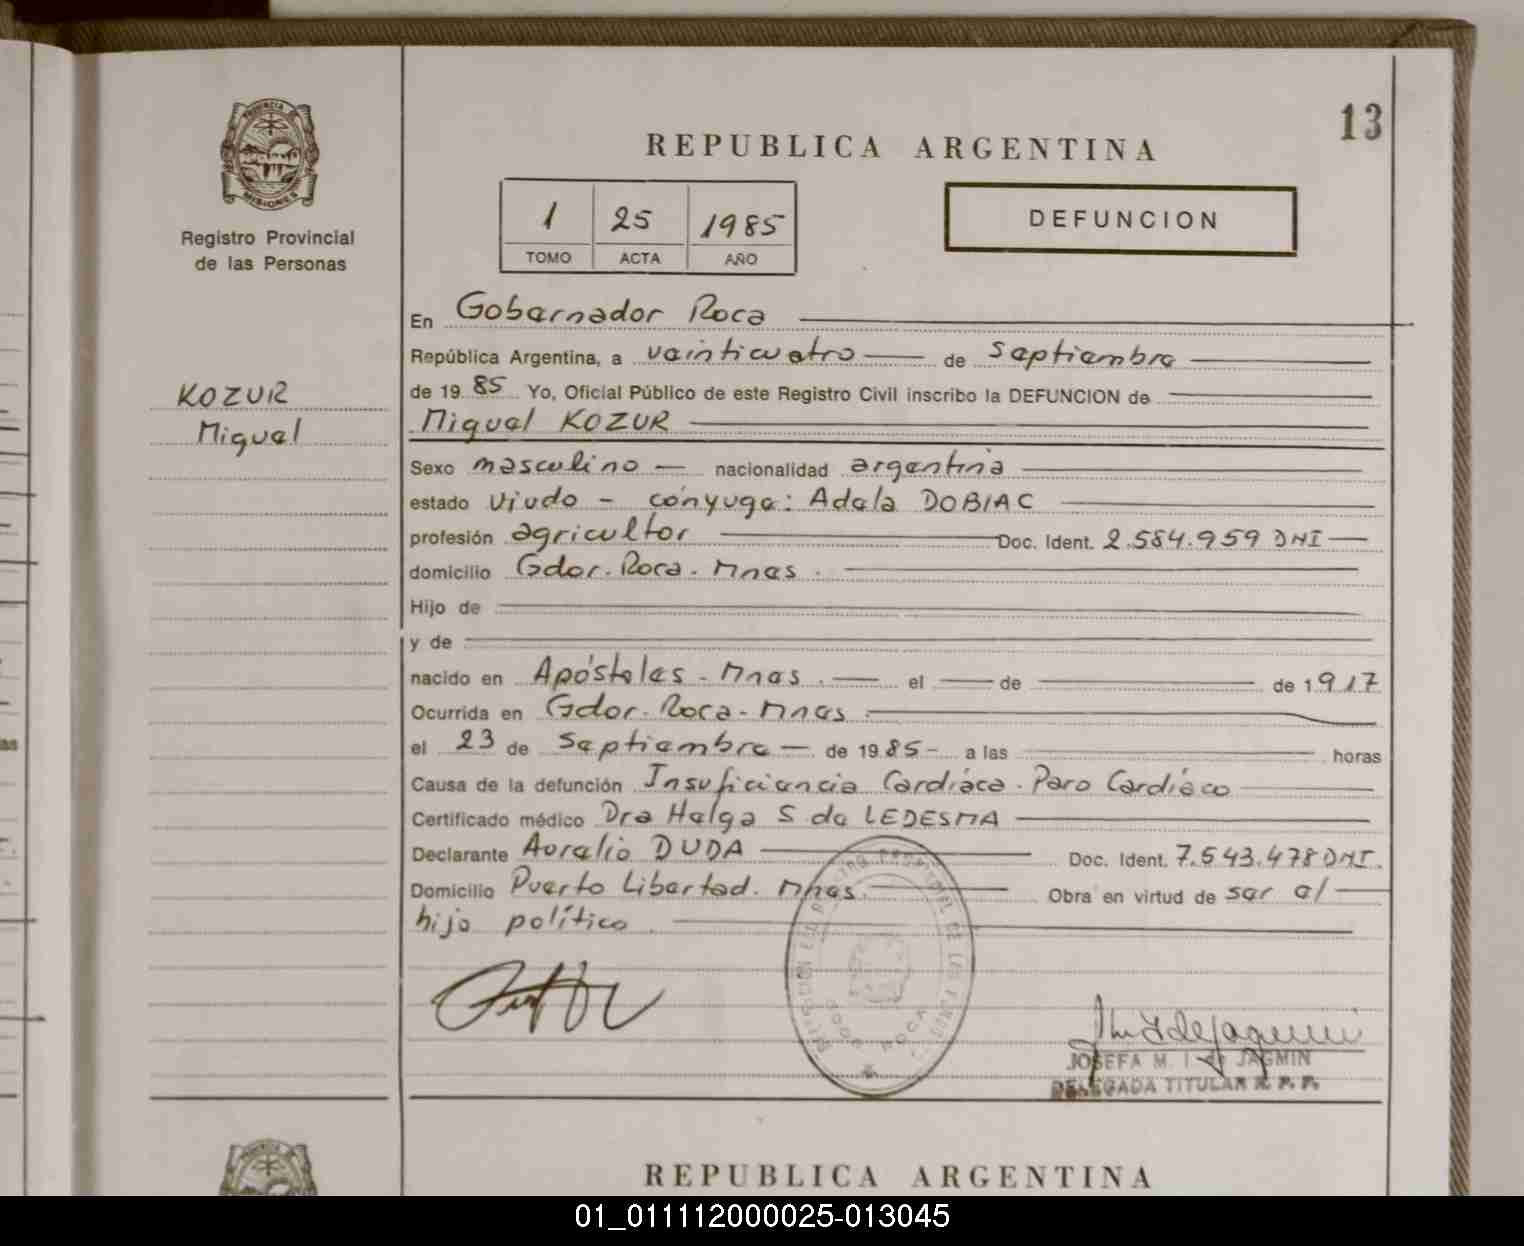 13
REPUBLICA ARGENTINA
PROVINCIA DE
MISIONES
Registro Provincial
de las Personas
1 25 1985
TOMO ACTA AÑO
DEFUNCION
KOZUR
Miguel
En Gobernador Roca
República Argentina, a veinticuatro de septiembre
de 1985 Yo, Oficial Público de este Registro Civil inscribo la DEFUNCION de
Miguel KOZUR
Sexo masculino nacionalidad argentina
estado viudo - cónyuge: Adela DOBIAC
profesión agricultor Doc. Ident. 2.584.959 DNI
domicilio Gdor. Roca. Mnes.
Hijo de
y de
nacido en Apóstoles - Mnes. el de de 1917
Ocurrida en Gdor. Roca - Mnes.
el 23 de septiembre de 1985 - a las horas
Causa de la defunción Insuficiencia Cardíaca. Paro Cardíaco
Certificado médico Dra Helga S de LEDESMA
Declarante Aurelio DUDA Doc. Ident. 7.543.478 DNI.
Domicilio Puerto Libertad. Mnes. Obra en virtud de ser el
hijo político.
GDOR ROCA
JOSEFA M. I. de JAGMIN
DELEGADA TITULAR R. P. P.
REPUBLICA ARGENTINA
01_011112000025-013045